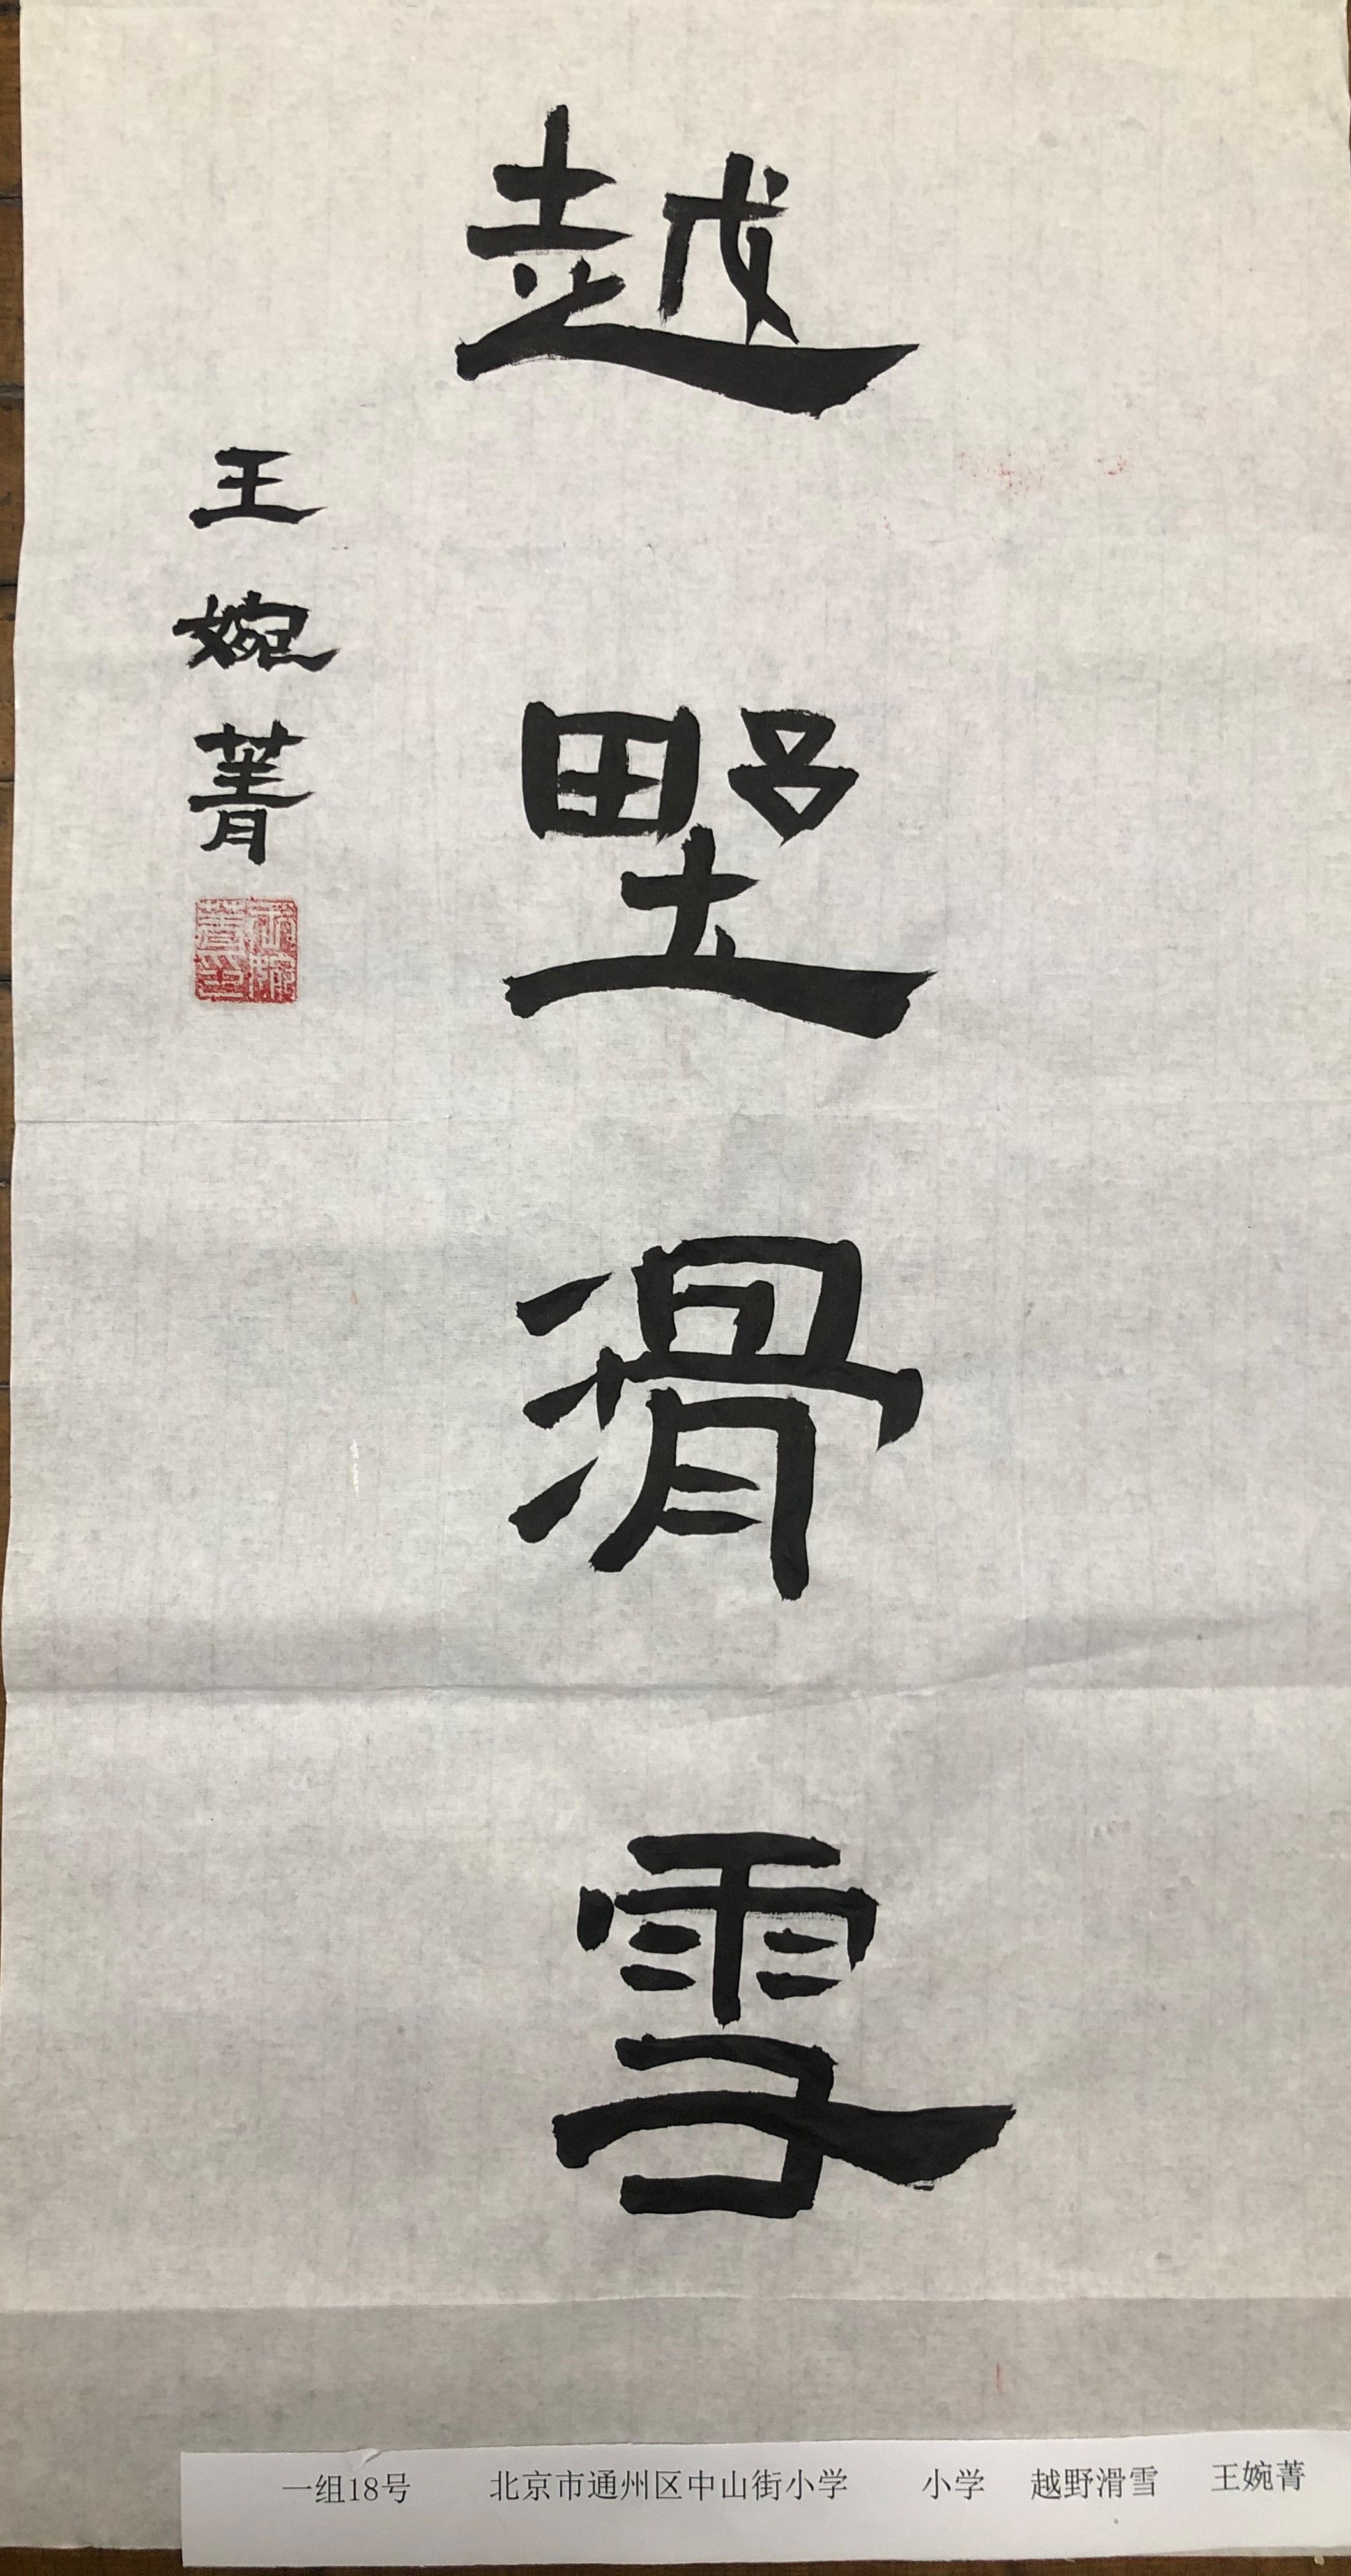 越野滑雪
王婉菁
王婉菁印
一组18号 北京市通州区中山街小学 小学 越野滑雪 王婉菁